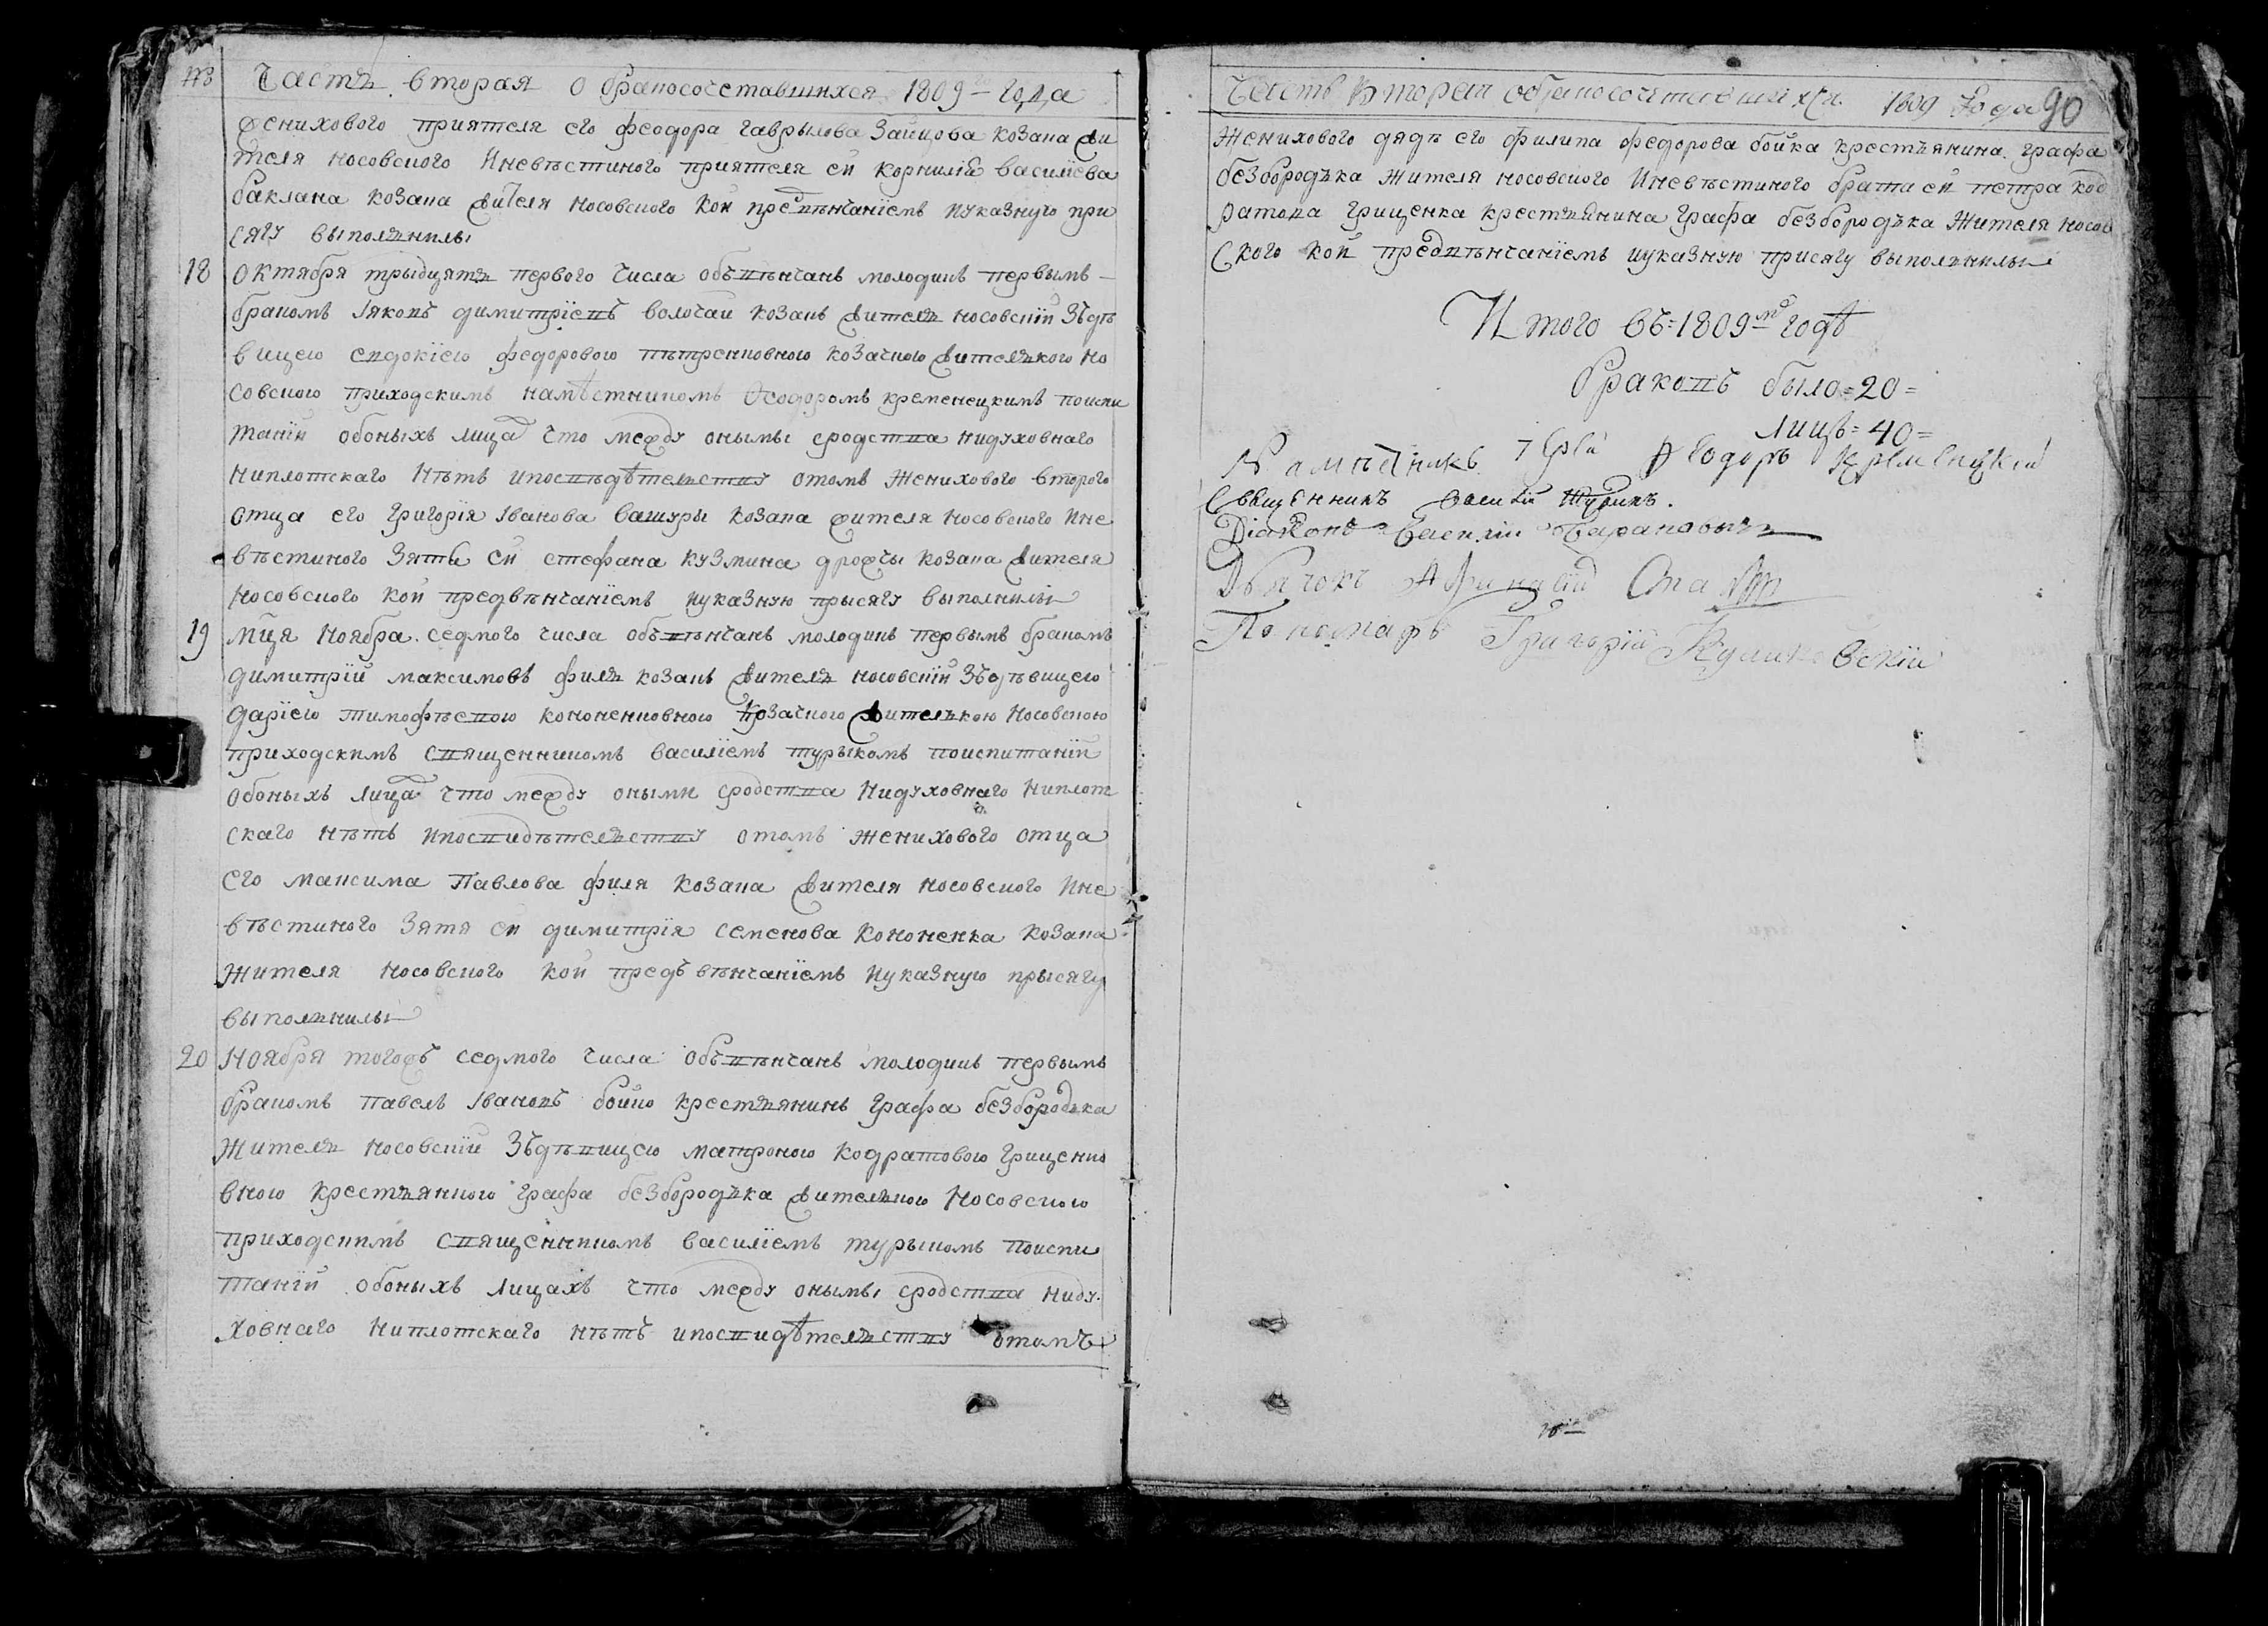 № Часть вторая о бракосочетавшихся 1809 года
женихового приятеля его феодора гаврылова Зайцова козака жи
теля носовского Иневѣстиного приятеля ей корнилія василіева
баклана козака жителя носовского кой предвѣнчаніемъ иуказную при
сягу выполънилы
18 Октября трыдцять первого числа объвѣнчанъ молодикъ первымъ
бракомъ Іяковъ димитріевъ волочай козакъ жытель носовскій Зъдѣ
вицею евдокіею федоровою пѣтренковною козачкою жителкою но
совскою приходскимъ намѣстникомъ Феодоромъ кременецкимъ поиспи
таніи обоныхъ лицах что между онымы сродства нидуховнаго
ниплотскаго нѣтъ ипосвѣдѣтельству отомъ женихового второго
отца его григорія Іванова вашуры козака жителя носовского Ине
вѣстиного Зятя ей стефана кузмина дрофы козака жителя
носовского кой предвѣнчаніемъ иуказную прысягу выполнилы
19 мця Ноября седмого числа объвѣнчанъ молодикъ первымъ бракомъ
димитрій максимовъ филь козакъ жытель носовскій Зъдѣвицею
даріею тимофѣевою кононенковною козачкою жителькою Носовскою
приходскимъ священникомъ василіемъ турыкомъ поиспитаніи
обоныхъ лицах что между оными сродства нидуховнаго ниплот
скаго нѣтъ ипосвидѣтельству отомъ женихового отца
его максима Павлова филя козака жителя носовского Ине
вѣстиного Зятя ей димитрія семенова кононенка козака
жителя носовского кой предъвѣнчаніемъ иуказную прысягу
выполънилы
20 Ноября тогожъ седмого числа объвѣнчанъ молодикъ первымъ
бракомъ павелъ Івановъ бойко крестъянинъ графа безбородька
жителъ носовскій Зъдѣвицею матроною кодратовою грищенко
вною крестъянкою графа безбородька жителькою Носовскою
приходскимъ священникомъ василіемъ турыкомъ поиспи
таніи обоныхъ лицахъ что между онымы сродства ниду
ховнаго ниплотскаго нѣтъ ипосвидѣтельству отомъ
Часть вторая обракосочетавшихся 1809 года 90
женихового дядѣ его филипа федорова бойка крестъянина графа
безбородька жителя носовского Иневѣстиного брата ей петра код
ратова грищенка крестъянина графа безбородька жителя носов
ского кой предвѣнчаніемъ иуказную присягу выполънилы
Итого въ 1809м годѣ
браковъ было 20
лицъ 40
Намѣсникъ Іерей Феодоръ Кременецкій
Священникъ Василій Турикъ.
Діаконъ Василій Барановычъ
Дьячокъ
Пономаръ Григорій Куликовскій